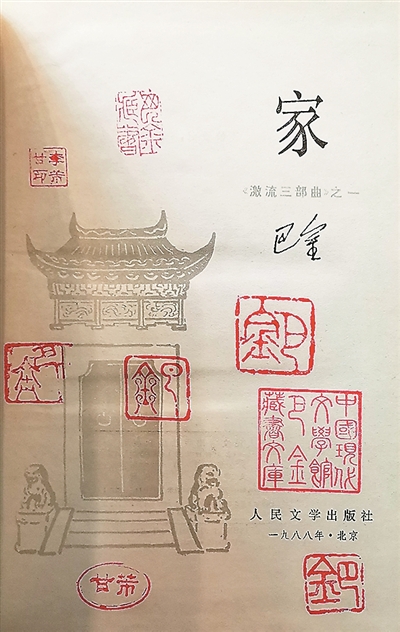 家
《激流三部曲》之一
巴金
巴金
藏書
李芾
甘印
巴金
巴金
中國現代
文學館
巴金
藏書文庫
人民文学出版社
一九八八年·北京
芾甘